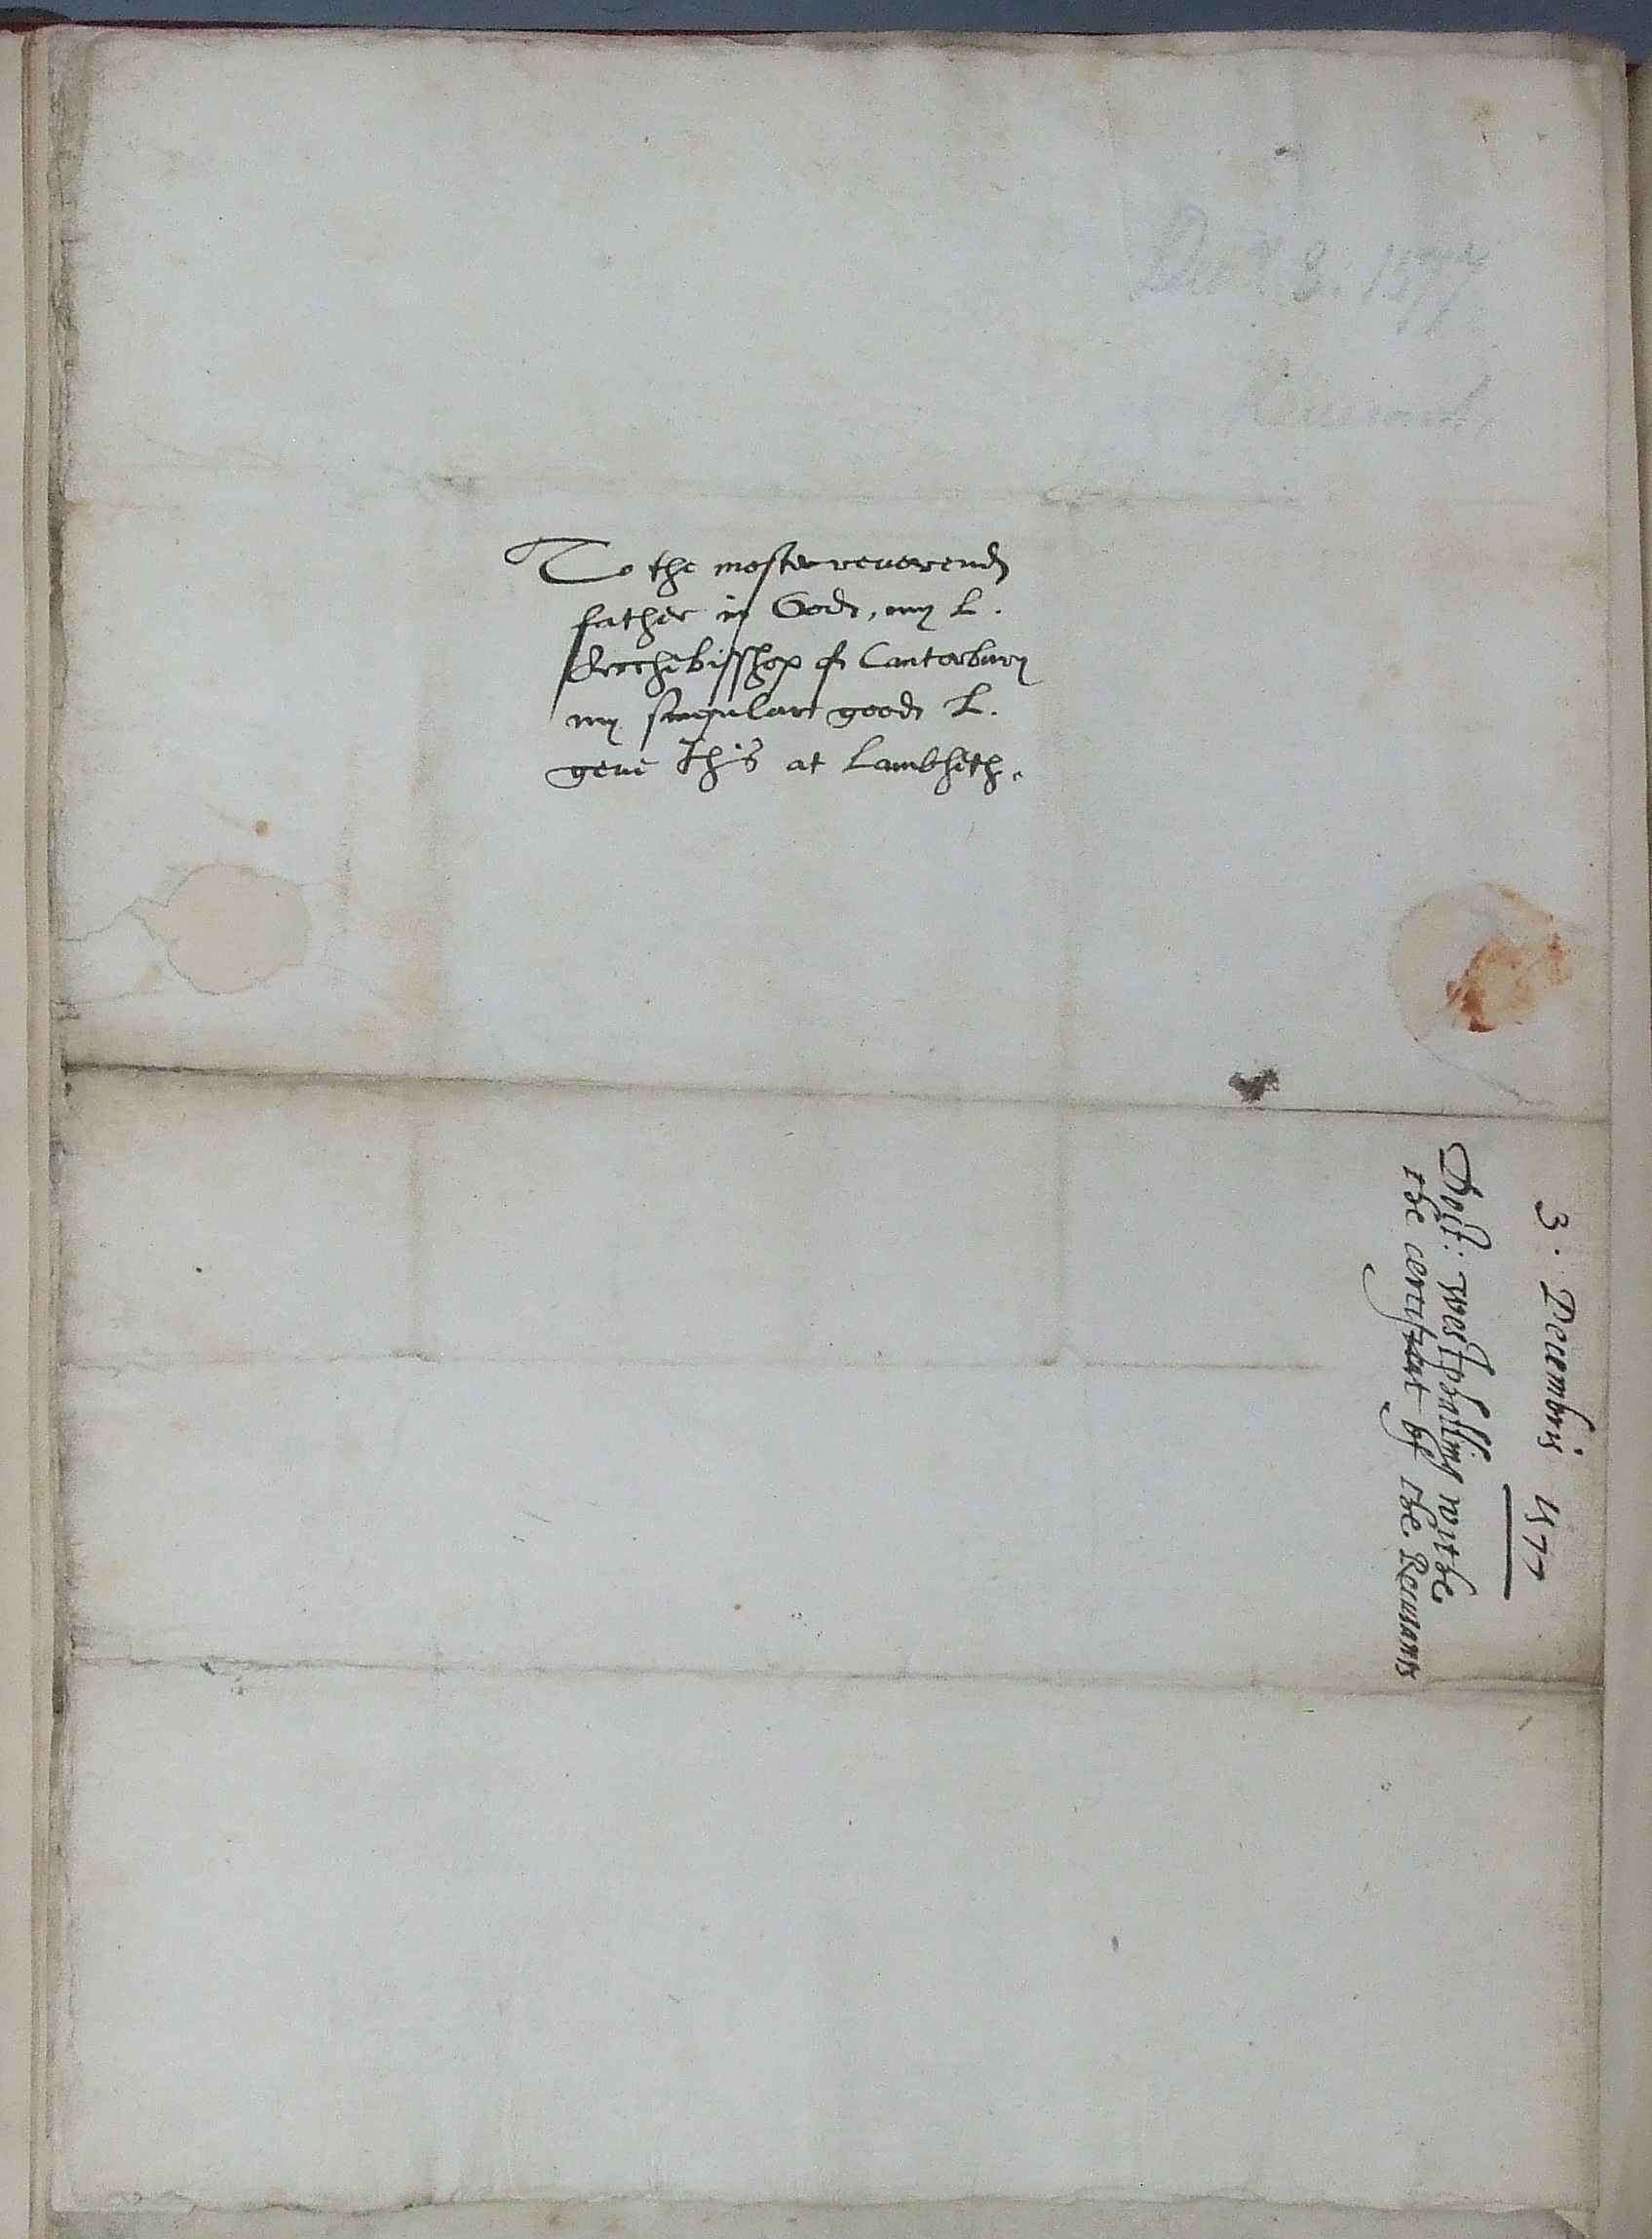 3. 1577
To the moste reverend
father in God, my L.
Archebisshop of Canterbury
my singular good L.
geve this at Lambheth.
3. Decembris 1577
Doct: westphalling withe
the certificat of the Recusants